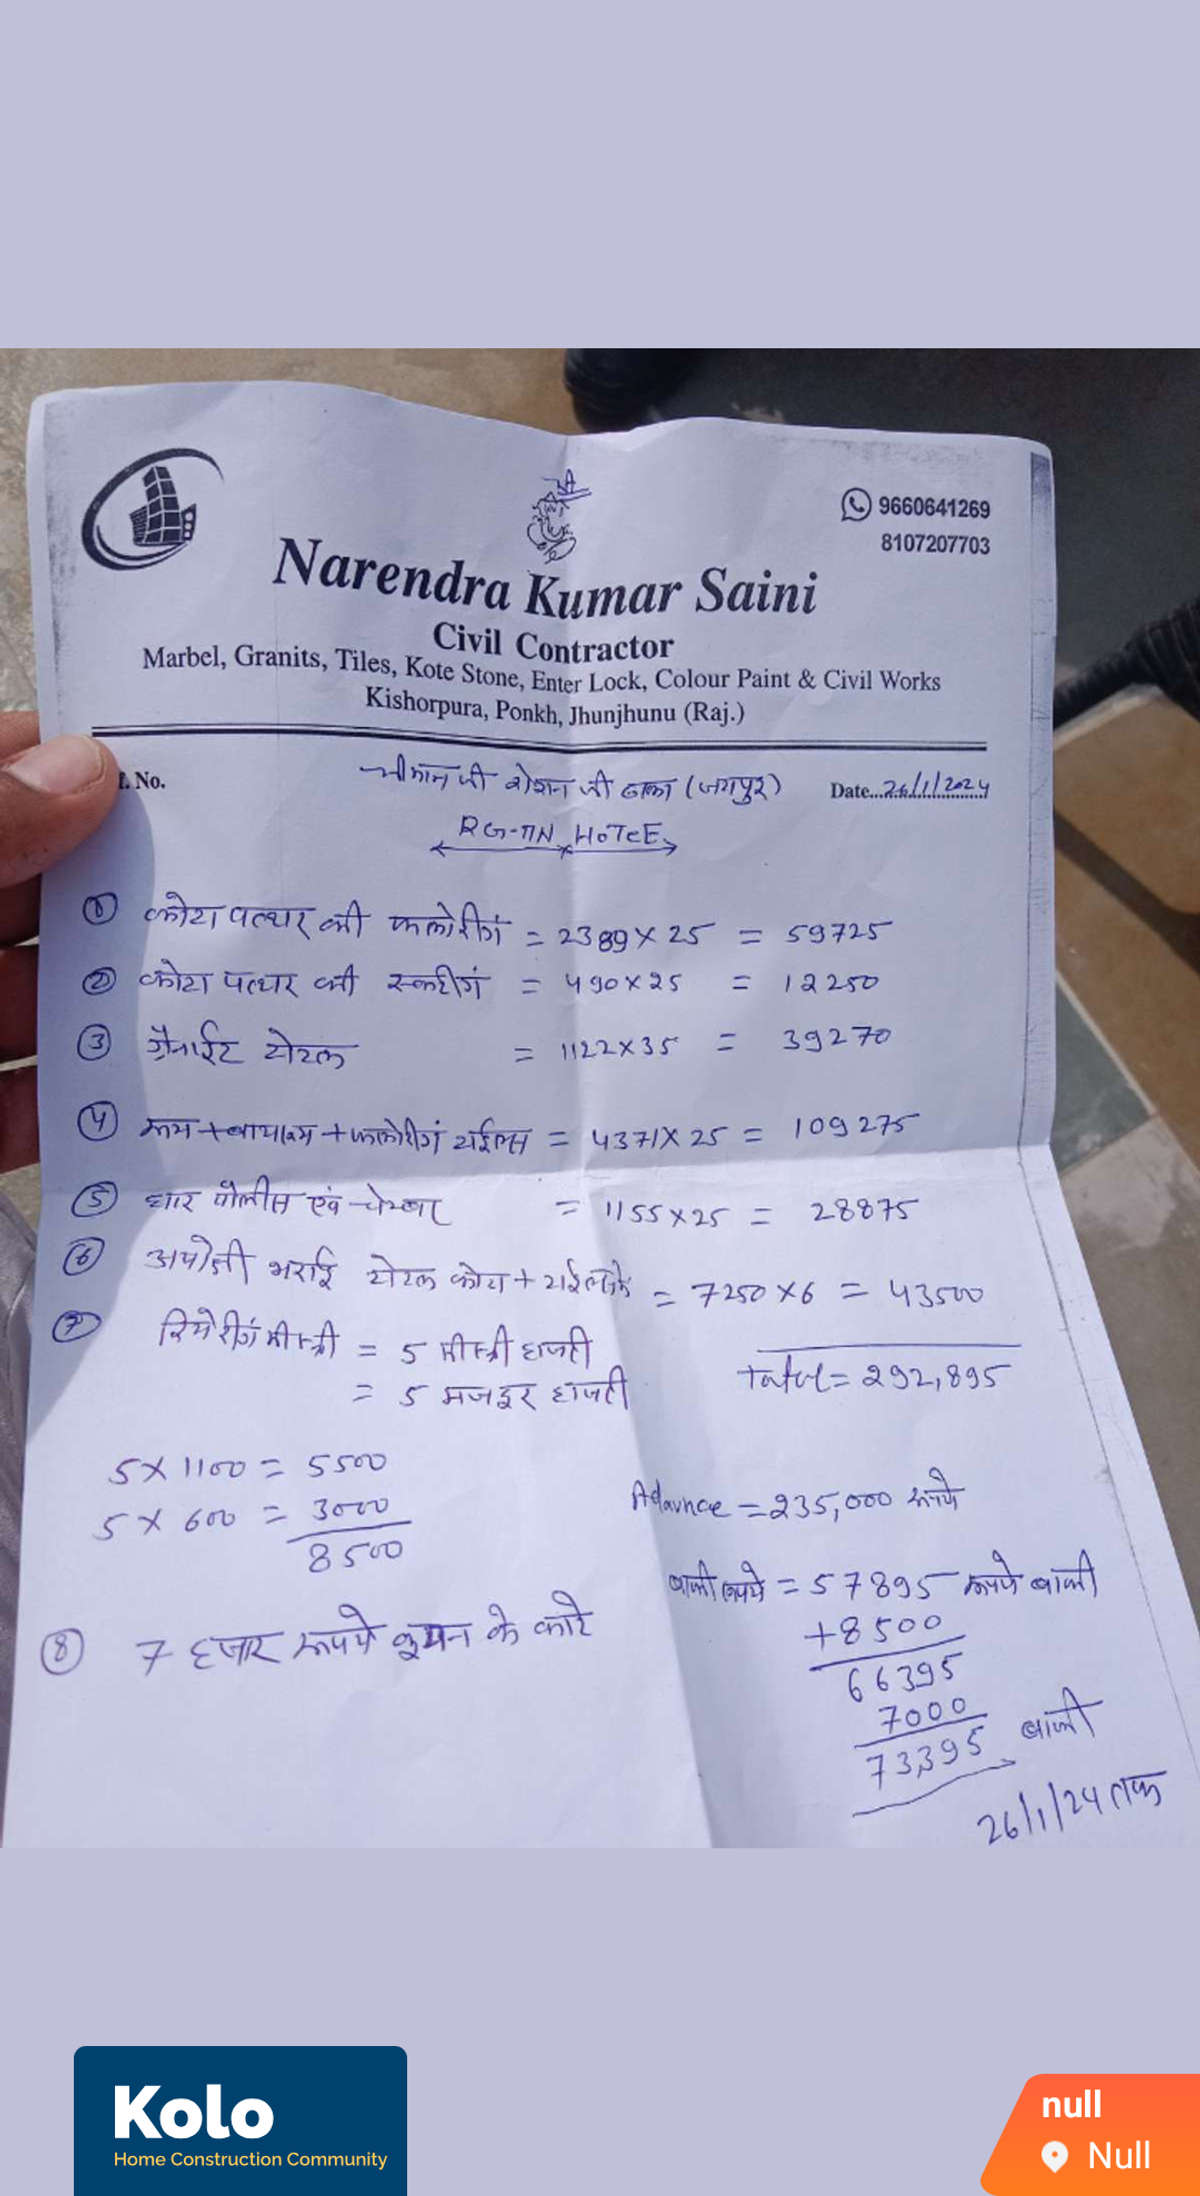 9660641269
8107207703
Narendra Kumar Saini
Civil Contractor
Marbel, Granits, Tiles, Kote Stone, Enter Lock, Colour Paint & Civil Works
Kishorpura, Ponkh, Jhunjhunu (Raj.)
No.
श्रीमान जी रोशन जी ढाका (जयपुर)
Date...26/1/2024
RG-
① कोटा पत्थर की फलोरींग = 2389×25 = 59725
② कोटा पत्थर की स्कटींग = 490×25 = 12250
③ ग्रेनाईट = 1122×35 = 39270
④ रूम+बाथरूम+फलोरींग टाईल्स = 4371×25 = 109275
⑤ धार पोलीस एवं चेम्बर = 1155×25 = 28875
⑥ अपोक्षी भराई कोटा + = 7250×6 = 43500
⑦ रिपेरींग मीस्त्री = 5 मीस्त्री हाजरी
= 5 मजदूर हाजरी
Total = 292,895
5×1100 = 5500
5×600 = 3000
8500
Adavnce = 235,000 रूपये
बाकी रूपये = 57895 रूपये बाकी
+8500
66395
7000
73,395 बाकी
⑧ 7 हजार रूपये के
26/1/24 तक
Kolo
Home Construction Community
null
Null